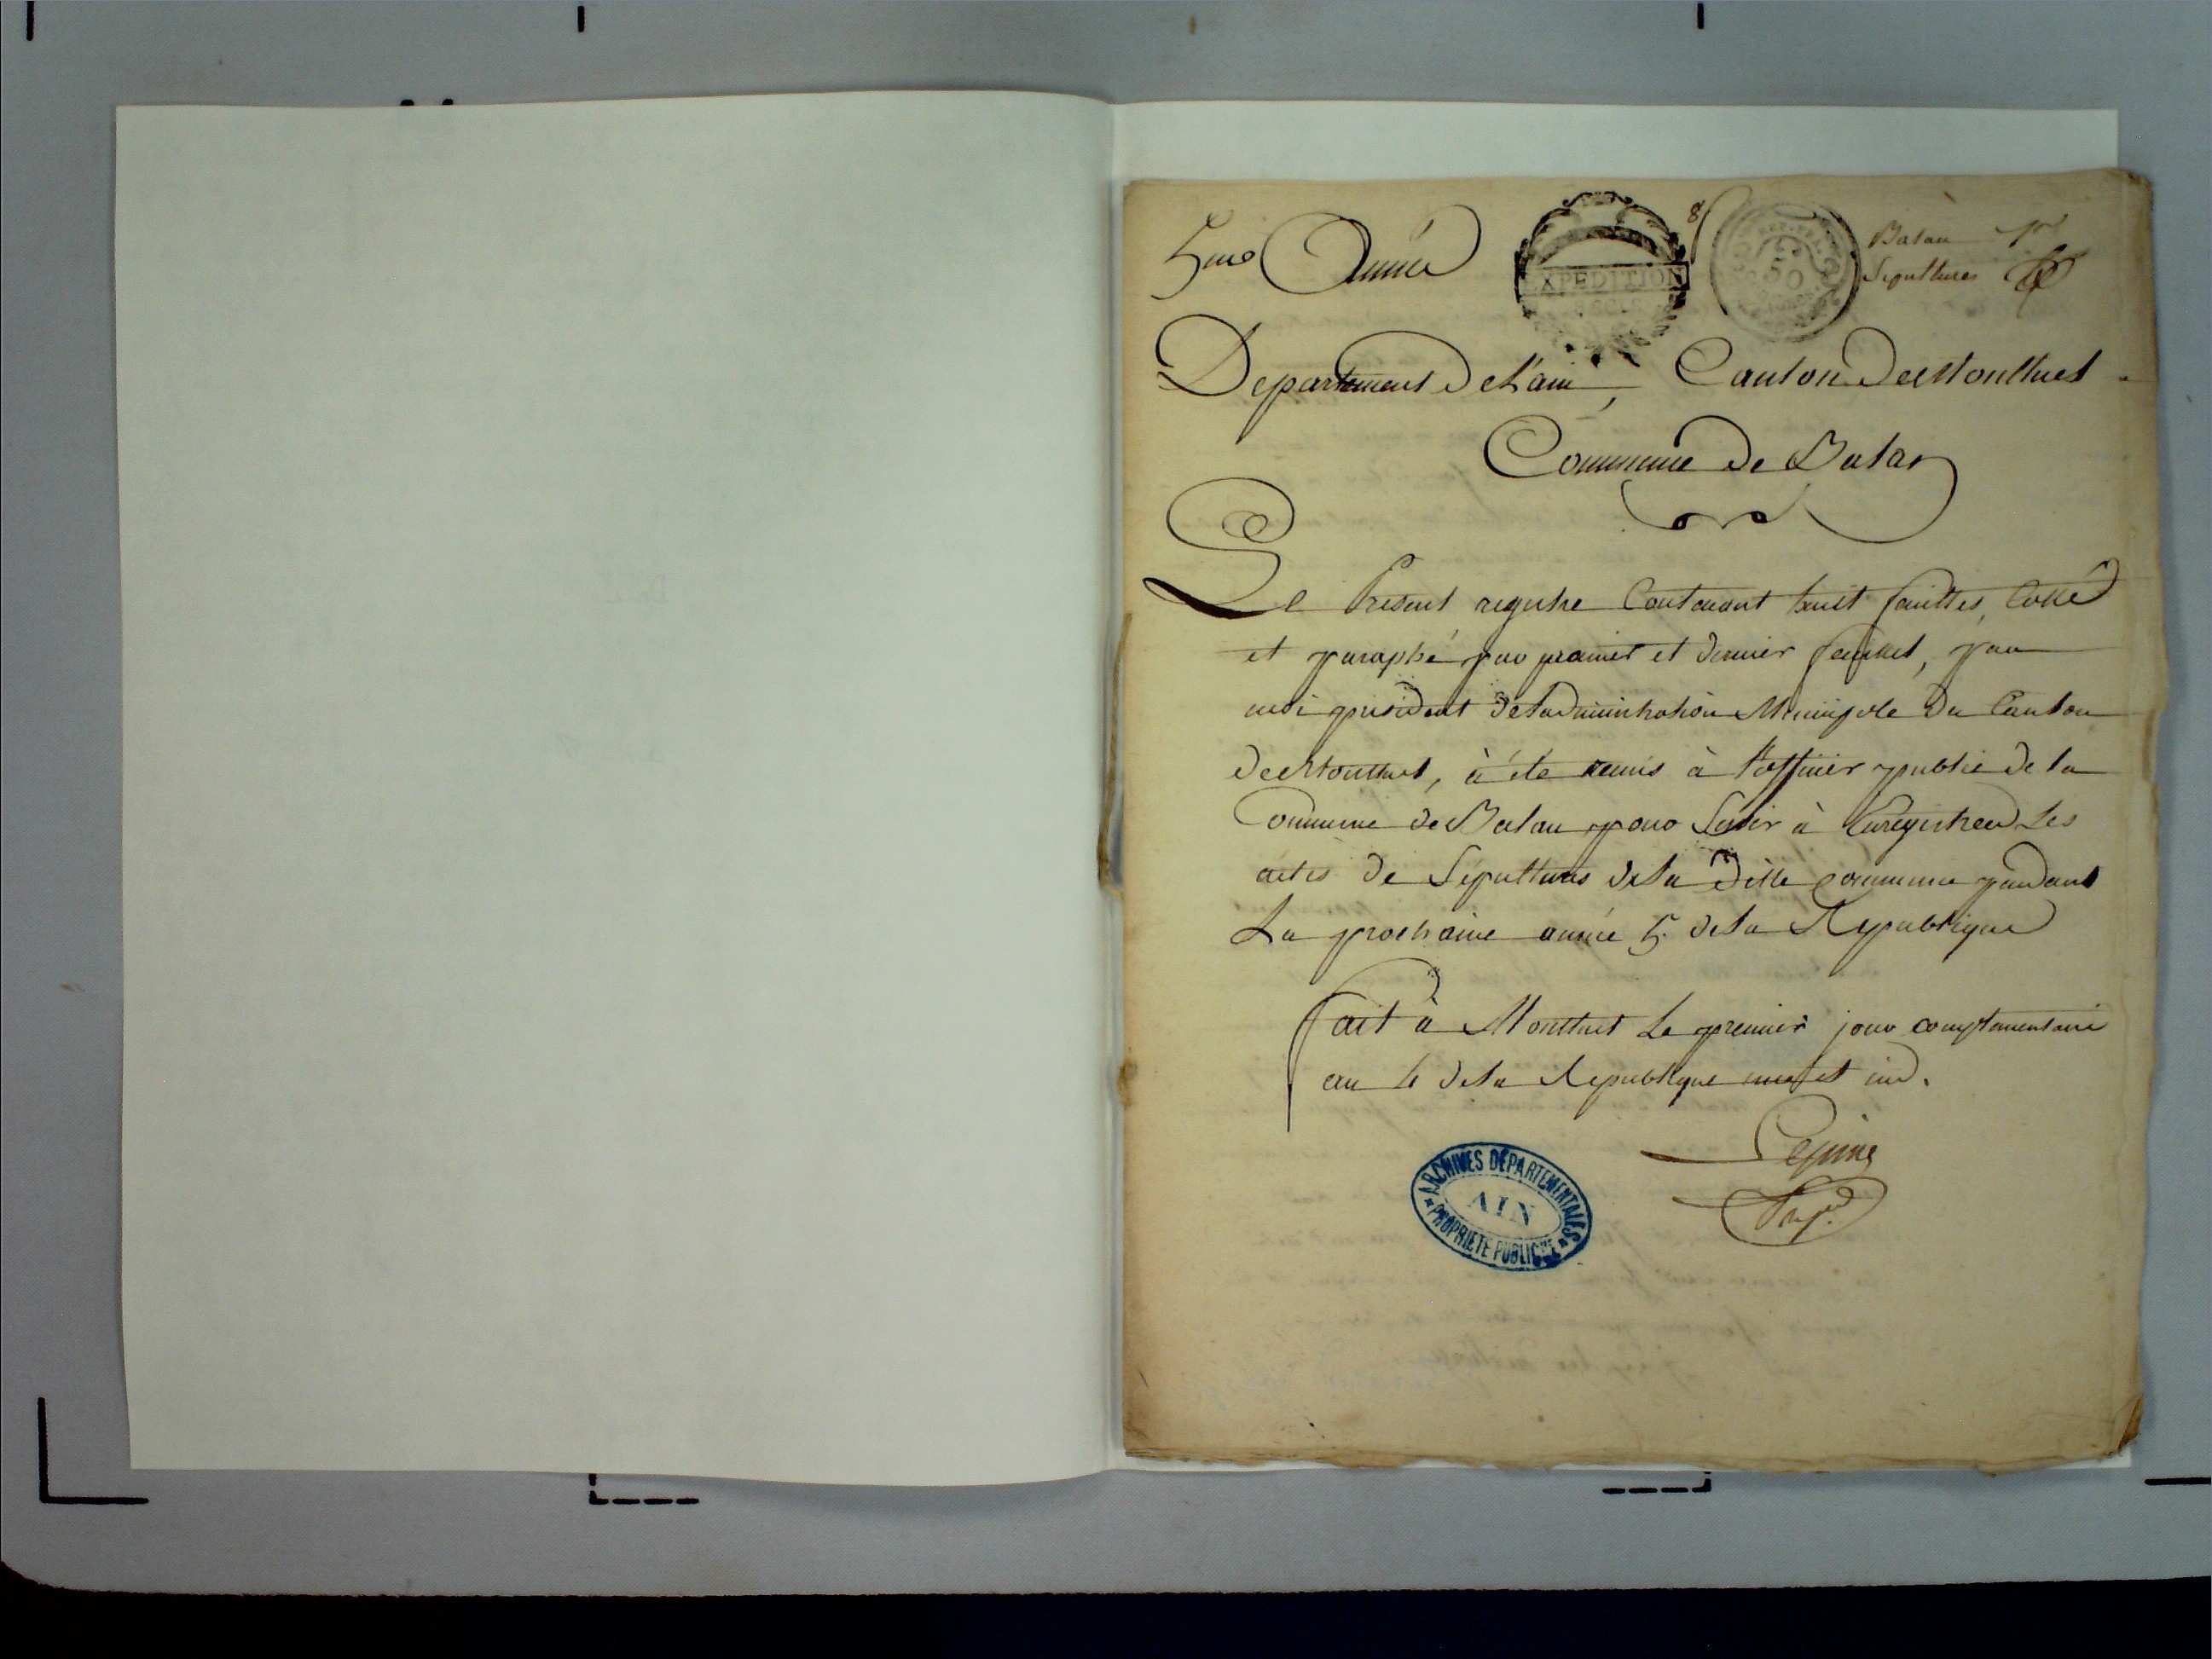 5me Année
EXPEDITION
8
50
Balan 1er
Sepultures
Departement de L'ain, Canton de Montluel
Commune de Balan
Le Present registre Contenant huit feuilles, Cotté
et paraphé par premier et dernier feuillet, par
moi président de l'administration Municipale du Canton
de Montluel, à été remis à l'officier public de la
Commune de Balan pour servir à Enregistrer Les
actes de Sépultures de la ditte commune pendant
La prochaine année 5e de la Republique
fait à Montluel Le premier jour complementaire
an 4 de la Republique une et ind.
Lepine
Presid
ARCHIVES DÉPARTEMENTALES
AIN
PROPRIÉTÉ PUBLIQUE